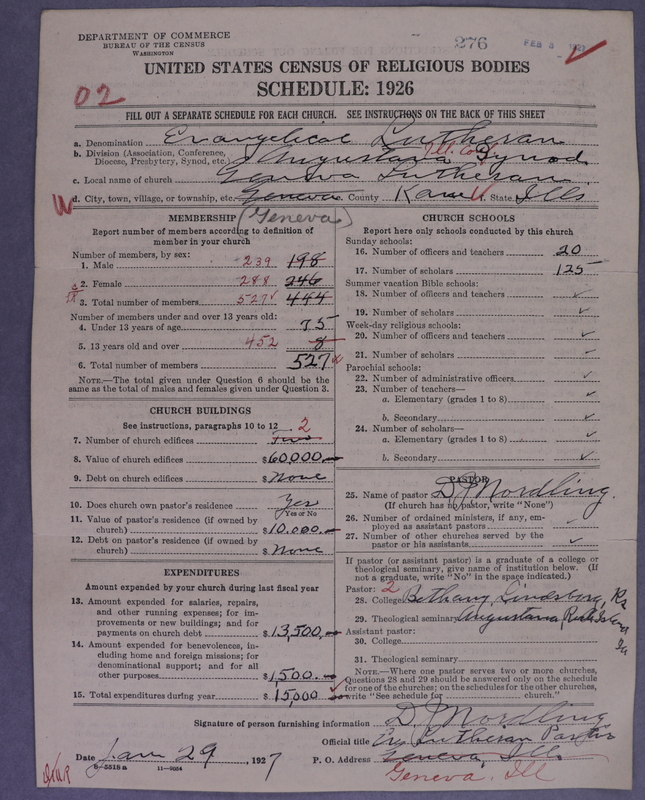 DEPARTMENT OF COMMERCE
BUREAU OF THE CENSUS
WASHINGTON
276
FEB 3 1927
UNITED STATES CENSUS OF RELIGIOUS BODIES
SCHEDULE: 1926
02
FILL OUT A SEPARATE SCHEDULE FOR EACH CHURCH. SEE INSTRUCTIONS ON THE BACK OF THIS SHEET
a. Denomination Evangelical Lutheran
b. Division (Association, Conference, Diocese, Presbytery, Synod, etc.) Ill. Conf. Augustana Synod
c. Local name of church Geneva Lutheran
d. City, town, village, or township, etc. Geneva County Kane State Ills
(Geneva)
MEMBERSHIP
Report number of members according to definition of member in your church
Number of members, by sex:
1. Male 239 198
2. Female 288 246
3. Total number of members 527 444
Number of members under and over 13 years old:
4. Under 13 years of age 75
5. 13 years old and over 452 8
6. Total number of members 527
NOTE.—The total given under Question 6 should be the same as the total of males and females given under Question 3.
CHURCH BUILDINGS
See instructions, paragraphs 10 to 12
7. Number of church edifices Two 2
8. Value of church edifices $ 60,000.—
9. Debt on church edifices $ None
10. Does church own pastor's residence Yes
Yes or No
11. Value of pastor's residence (if owned by church) $ 10.000.—
12. Debt on pastor's residence (if owned by church) $ None
EXPENDITURES
Amount expended by your church during last fiscal year
13. Amount expended for salaries, repairs, and other running expenses; for improvements or new buildings; and for payments on church debt $ 13,500.—
14. Amount expended for benevolences, including home and foreign missions; for denominational support; and for all other purposes $ 1,500.—
15. Total expenditures during year $ 15,000
CHURCH SCHOOLS
Report here only schools conducted by this church
Sunday schools:
16. Number of officers and teachers 20
17. Number of scholars 125
Summer vacation Bible schools:
18. Number of officers and teachers ✓
19. Number of scholars ✓
Week-day religious schools:
20. Number of officers and teachers ✓
21. Number of scholars ✓
Parochial schools:
22. Number of administrative officers ✓
23. Number of teachers—
a. Elementary (grades 1 to 8) ✓
b. Secondary ✓
24. Number of scholars—
a. Elementary (grades 1 to 8) ✓
b. Secondary ✓
PASTOR
25. Name of pastor D. J. Nordling.
(If church has no pastor, write "None")
26. Number of ordained ministers, if any, employed as assistant pastors ✓
27. Number of other churches served by the pastor or his assistants ✓
If pastor (or assistant pastor) is a graduate of a college or theological seminary, give name of institution below. (If not a graduate, write "No" in the space indicated.)
Pastor: 2
28. College Bethany, Lindsborg, Ks
29. Theological seminary Augustana, Rock Island Ill
Assistant pastor:
30. College
31. Theological seminary
NOTE.—Where one pastor serves two or more churches, Questions 28 and 29 should be answered only on the schedule for one of the churches; on the schedules for the other churches, write "See schedule for church."
Signature of person furnishing information D. J. Nordling
Official title Ev. Lutheran Pastor
Date Jan 29, 1927
P. O. Address Geneva, Ills.
Geneva, Ill
8—5518 a 11—9054